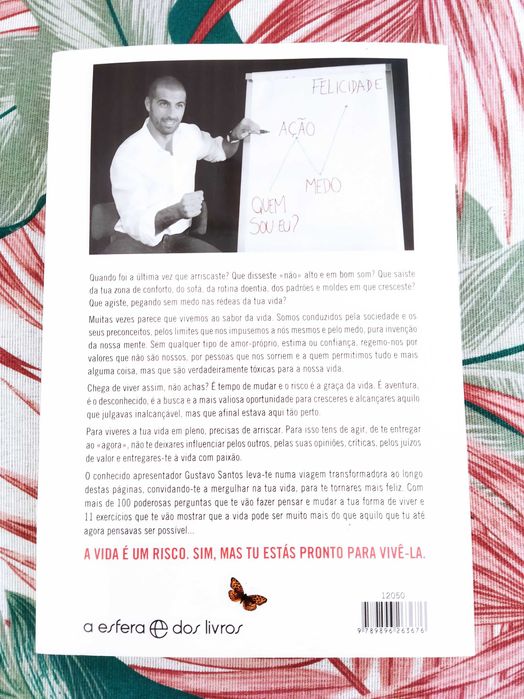 FELICIDADE
AÇÃO
MEDO
QUEM
SOU EU?
Quando foi a última vez que arriscaste? Que disseste «não» alto e em bom som? Que saíste
da tua zona de conforto, do sofa, da rotina doentia, dos padrões e moldes em que cresceste?
Que agiste, pegando sem medo nas rédeas da tua vida?
Muitas vezes parece que vivemos ao sabor da vida. Somos conduzidos pela sociedade e os
seus preconceitos, pelos limites que nos impusemos a nós mesmos e pelo medo, pura invenção
da nossa mente. Sem qualquer tipo de amor-próprio, estima ou confiança, regemo-nos por
valores que não são nossos, por pessoas que nos sorriem e a quem permitimos tudo e mais
alguma coisa, mas que são verdadeiramente tóxicas para a nossa vida.
Chega de viver assim, não achas? É tempo de mudar e o risco é a graça da vida. É aventura,
é o desconhecido, é a busca e a mais valiosa oportunidade para cresceres e alcançares aquilo
que julgavas inalcançável, mas que afinal estava aqui tão perto.
Para viveres a tua vida em pleno, precisas de arriscar. Para isso tens de agir, de te entregar
ao «agora», não te deixares influenciar pelos outros, pelas suas opiniões, críticas, pelos juízos
de valor e entregares-te à vida com paixão.
O conhecido apresentador Gustavo Santos leva-te numa viagem transformadora ao longo
destas páginas, convidando-te a mergulhar na tua vida, para te tornares mais feliz. Com
mais de 100 poderosas perguntas que te vão fazer pensar e mudar a tua forma de viver e
11 exercícios que te vão mostrar que a vida pode ser muito mais do que aquilo que tu até
agora pensavas ser possível...
A VIDA É UM RISCO. SIM, MAS TU ESTÁS PRONTO PARA VIVÊ-LA.
12050
a esfera dos livros
9 789896 263676